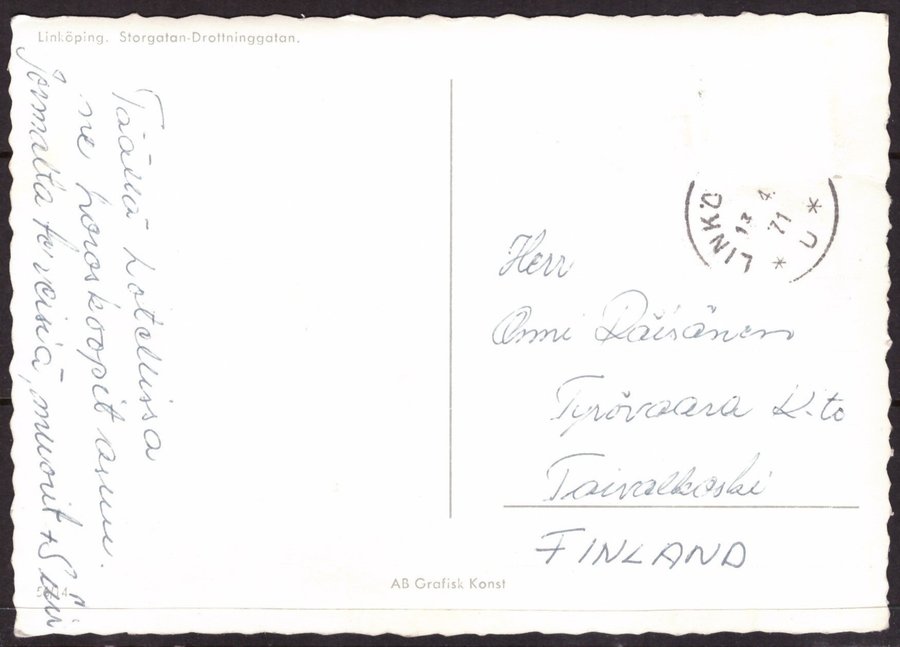 Linköping. Storgatan-Drottninggatan.
Täällä hotellissa
ne horoskoopit asuu.
Jormalta terveisiä, muorit +
LINKÖ
13 4
71
* U *
Herr
Onni Räisänen
Tyrövaara K-to
Taivalkoski
FINLAND
AB Grafisk Konst